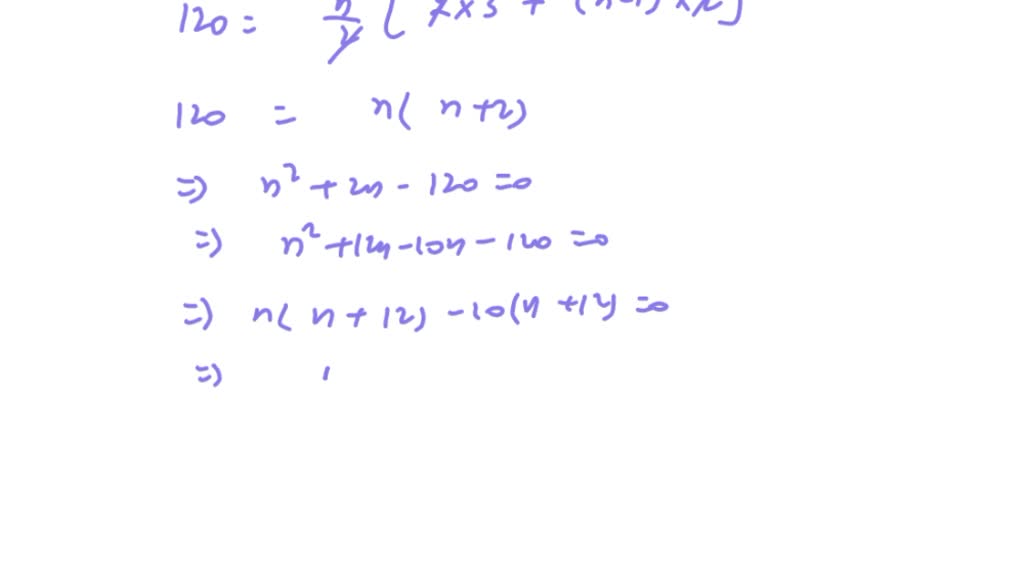 120 = n/2 [ 2×3 + (n-1)×2]
120 = n( n+2)
⇒ n² + 2n - 120 = 0
⇒ n² + 12n - 10n - 120 = 0
⇒ n( n + 12) - 10(n + 12) = 0
⇒